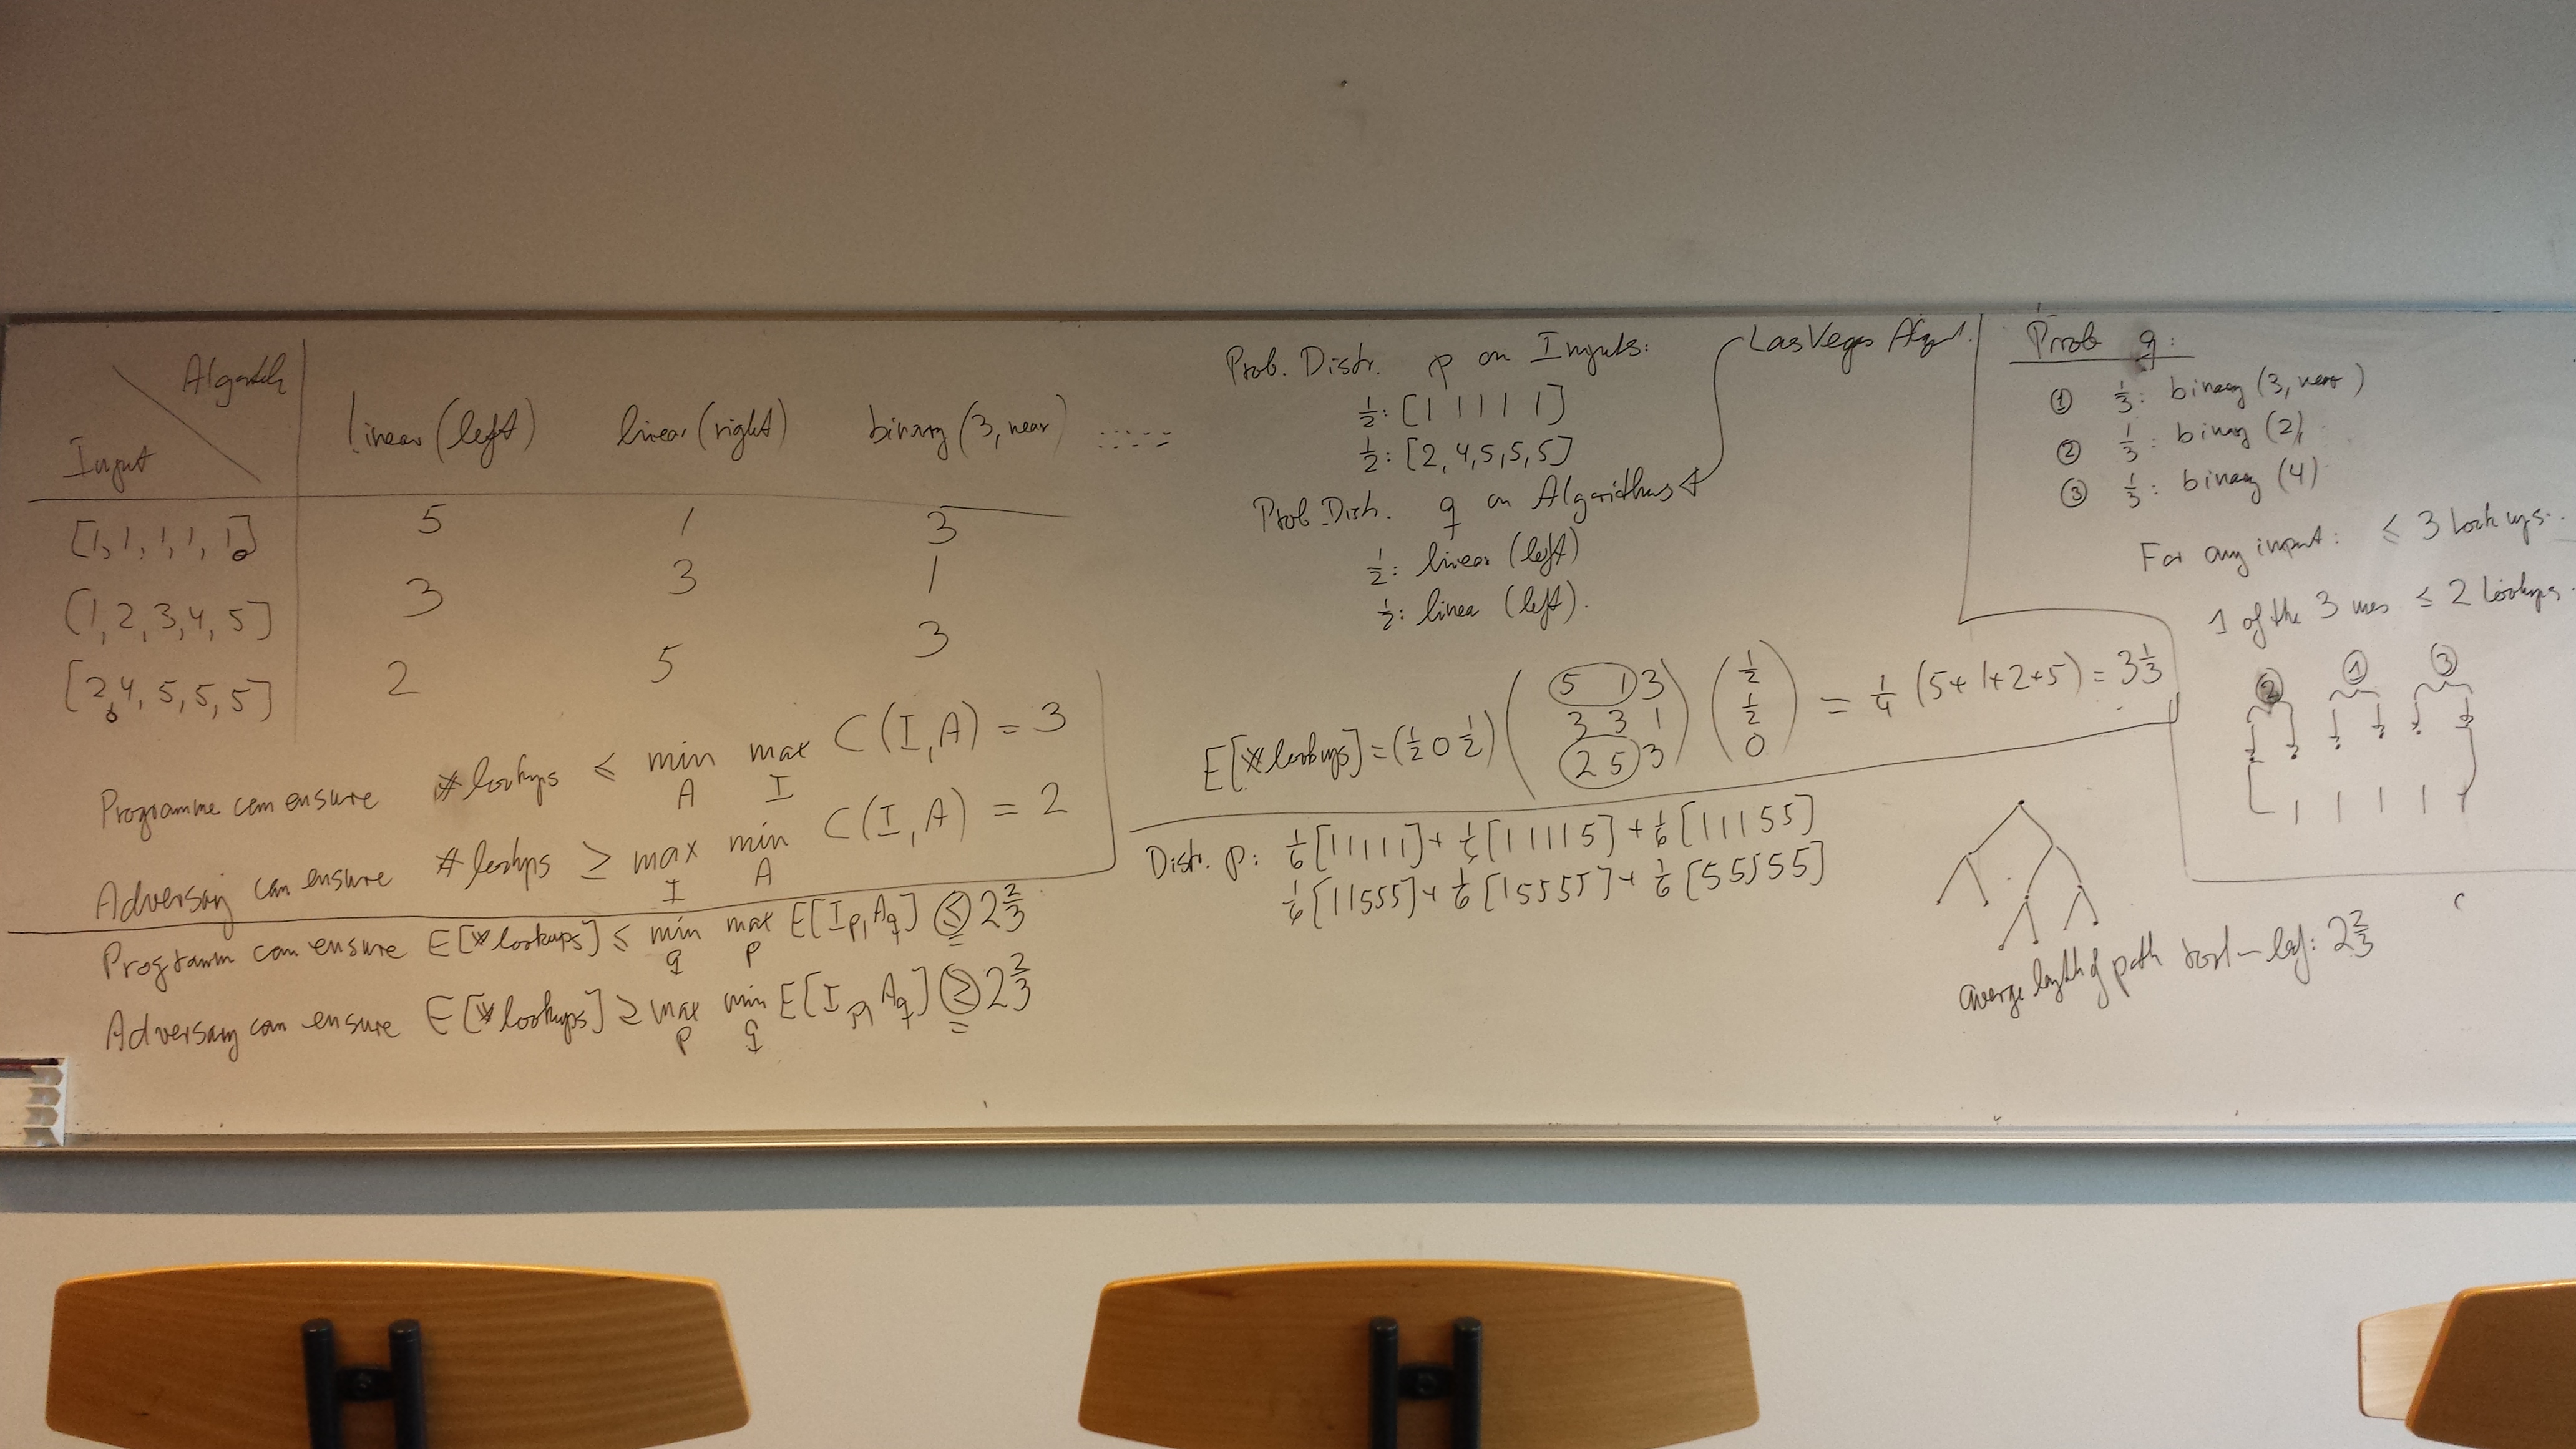 Algorith
Input
linear (left) linear (right) binary (3, near)
[1, 1, 1, 1, 1] 5 1 3
(1, 2, 3, 4, 5] 3 3 1
[2, 4, 5, 5, 5] 2 5 3
Programme can ensure # lookups ≤ min max C(I, A) = 3
A I
Adversary can ensure # lookups ≥ max min C(I, A) = 2
I A
Program can ensure E[# lookups] ≤ min max E[I_p, A_q] ≤ 2 2/3
q p
Adversary can ensure E[# lookups] ≥ max min E[I_p, A_q] ≥ 2 2/3
p q
Prob. Distr. p on Inputs:
1/2: [1 1 1 1 1]
1/2: [2, 4, 5, 5, 5]
Las Vegas Algort.
Prob. Distr. q on Algorithms
1/2: linear (left)
1/2: linear (left).
E[# lookups] = (1/2 0 1/2) (5 1 3
3 3 1
2 5 3) (1/2
1/2
0) = 1/4 (5+1+2+5) = 3 1/3
Distr. p: 1/6 [11111] + 1/6 [11115] + 1/6 [11155]
1/6 [11555] + 1/6 [15555] + 1/6 [55555]
average length of path root – leaf: 2 2/3
Prob q:
① 1/3: binary (3, near)
② 1/3: binary (2)
③ 1/3: binary (4)
For any input: ≤ 3 Lookups.
1 of the 3 uses ≤ 2 Lookups.
② ① ③